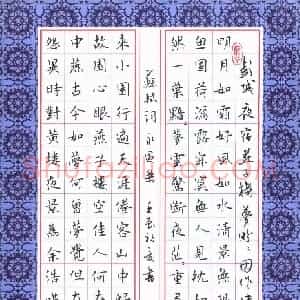 彭城夜宿燕子樓夢盼盼因作
明月如霜好風如水清景無
魚圓荷瀉露寂寞無人見紞如
然一葉黯黯夢雲驚斷夜茫茫重
蘇軾詞永遇樂
來小園行遍天涯倦客山中歸
故園心眼燕子樓空佳人何在
中燕古今如夢何曾夢覺但有
怨異時對黃樓夜景為余浩嘆